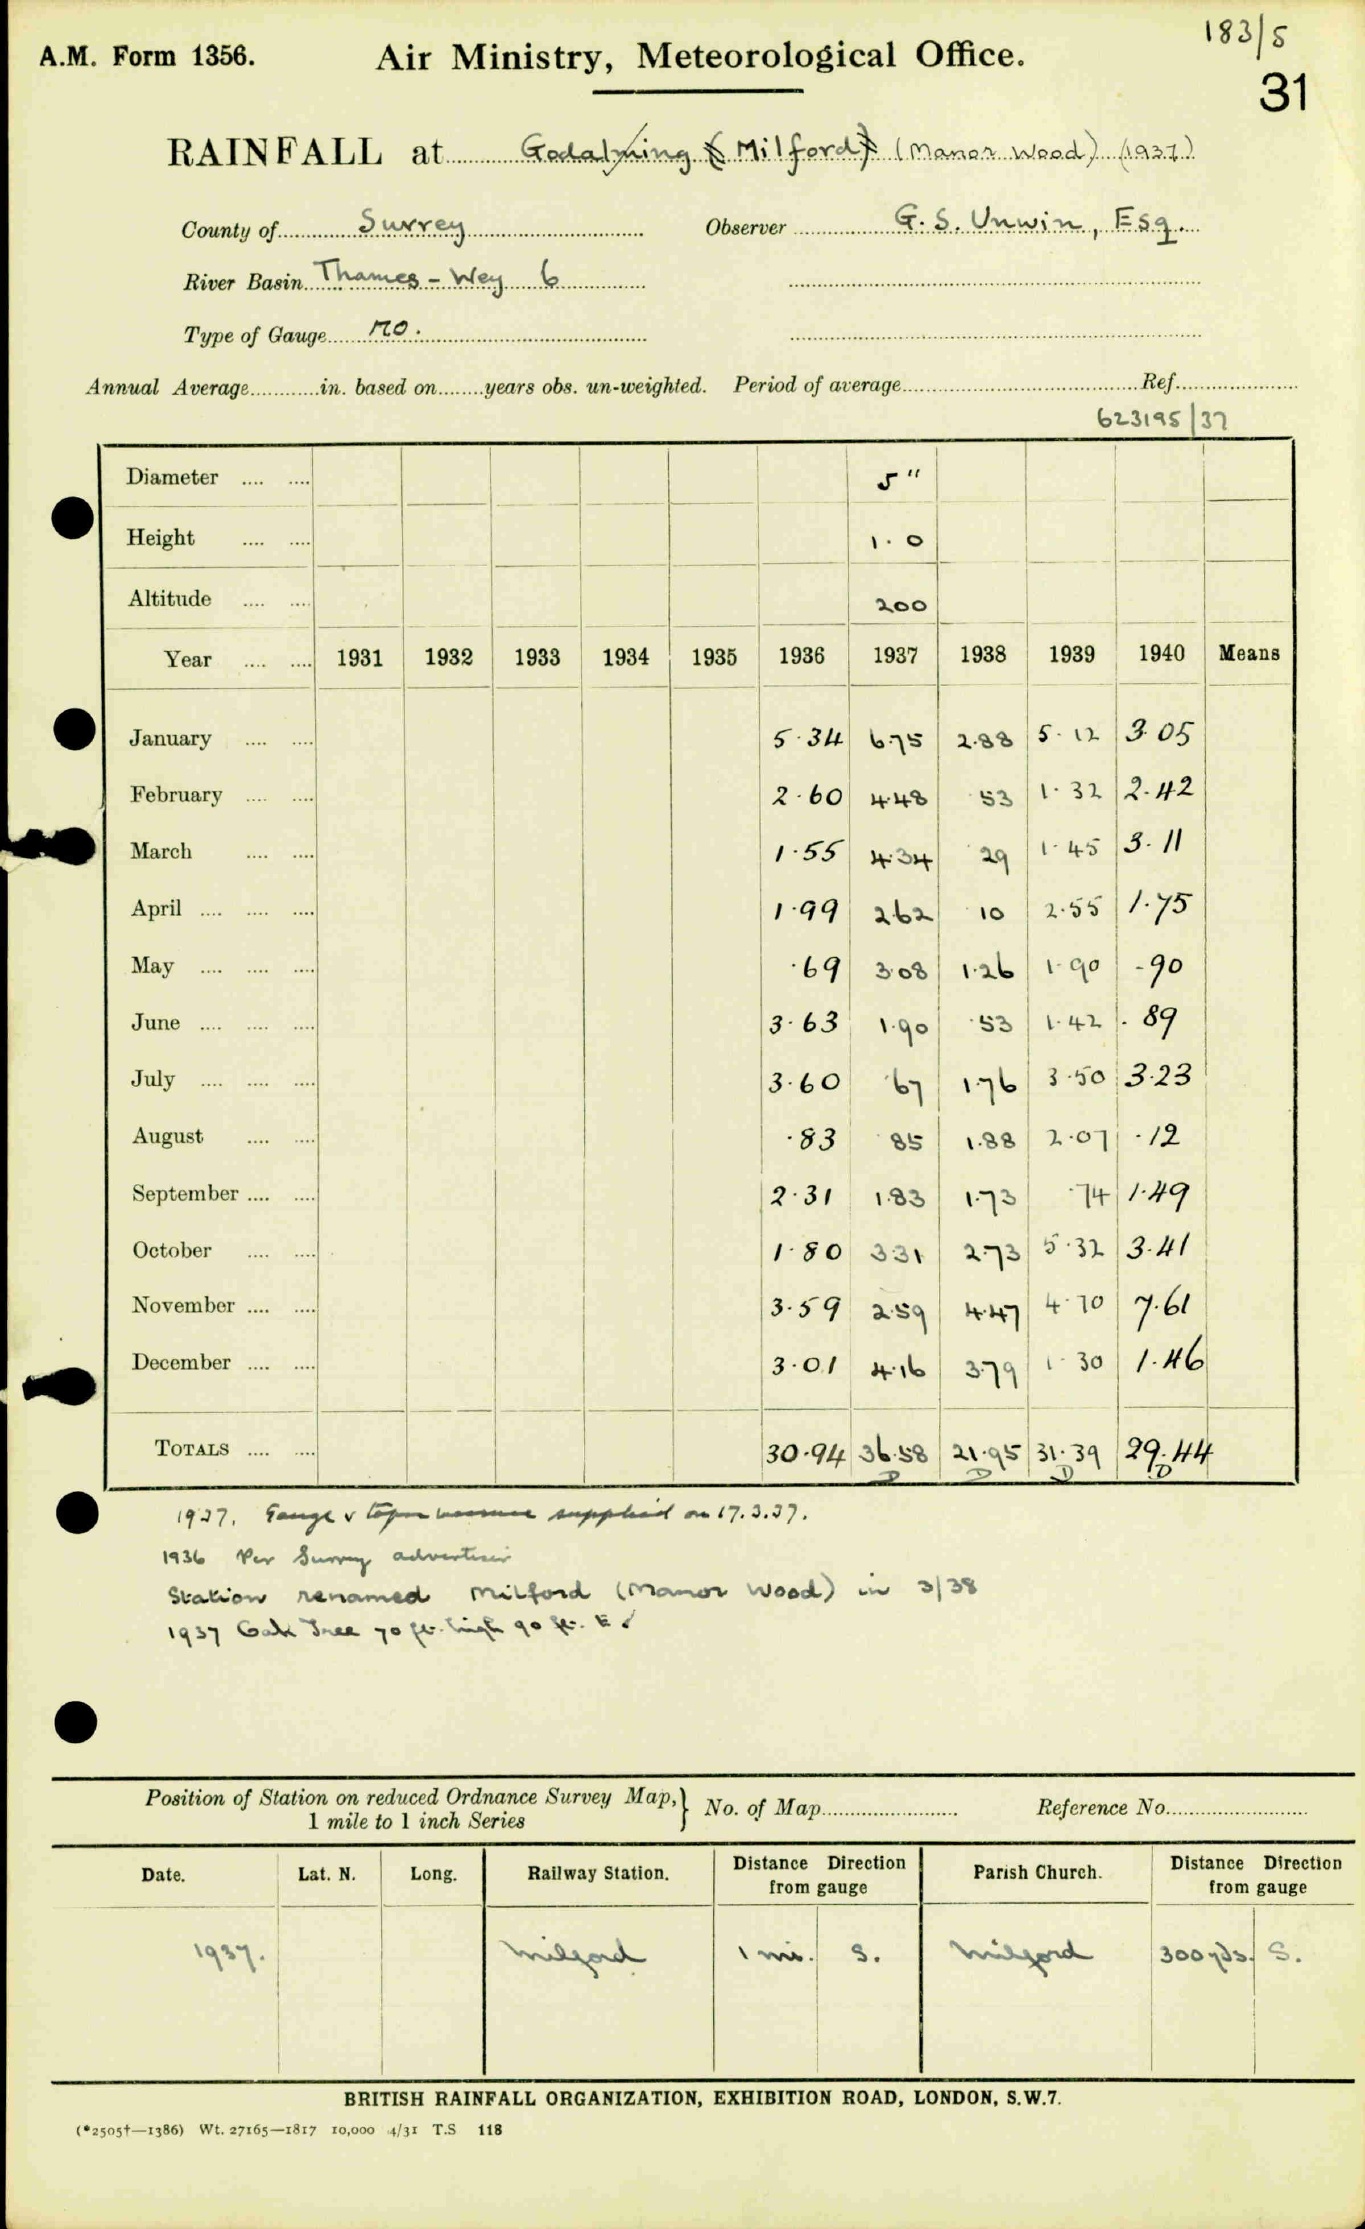 183/5
A.M. Form 1356. Air Ministry, Meteorological Office.
31
RAINFALL at Godalming (Milford) (Manor Wood) (1937)
County of Surrey Observer G. S. Unwin, Esq.
River Basin Thames - Wey 6
Type of Gauge MO.
Annual Average in. based on years obs. un-weighted. Period of average Ref.
623195/37
Diameter .... .... 5"
Height .... .... 1.0
Altitude .... .... 200
Year .... .... 1931 1932 1933 1934 1935 1936 1937 1938 1939 1940 Means
January .... .... 5.34 6.75 2.88 5.12 3.05
February .... .... 2.60 4.48 .53 1.32 2.42
March .... .... 1.55 4.34 .29 1.45 3.11
April .... .... .... 1.99 2.62 .10 2.55 1.75
May .... .... .... .69 3.08 1.26 1.90 .90
June .... .... .... 3.63 1.90 .53 1.42 .89
July .... .... .... 3.60 .67 1.76 3.50 3.23
August .... .... .83 .85 1.88 2.07 .12
September .... .... 2.31 1.83 1.73 .74 1.49
October .... .... 1.80 3.31 2.73 5.32 3.41
November .... .... 3.59 2.59 4.47 4.70 7.61
December .... .... 3.01 4.16 3.79 1.30 1.46
TOTALS .... .... 30.94 36.58 21.95 31.39 29.44
D D D D
1937. Gauge & taper measure supplied on 17.3.37.
1936 Per Surrey advertiser
Station renamed Milford (Manor Wood) in 3/38
1937 Oak Tree 70 ft. high 90 ft. E
Position of Station on reduced Ordnance Survey Map, 1 mile to 1 inch Series } No. of Map Reference No.
Date. Lat. N. Long. Railway Station. Distance Direction from gauge Parish Church. Distance Direction from gauge
1937. Milford 1 mi. S. Milford 300 yds. S.
BRITISH RAINFALL ORGANIZATION, EXHIBITION ROAD, LONDON, S.W.7.
(*2505†—1386) Wt. 27165—1817 10,000 4/31 T.S 118